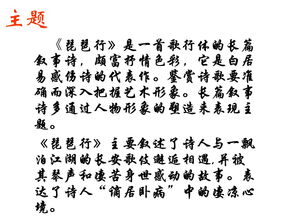 主题
《琵琶行》是一首歌行体的长篇
叙事诗，颇富抒情色彩，它是白居
易感伤诗的代表作。鉴赏诗歌要准
确而深入把握艺术形象。长篇叙事
诗多通过人物形象的塑造来表现主
题。
《琵琶行》主要叙述了诗人与一飘
泊江湖的长安歌伎邂逅相遇，并被
其琴声和凄苦身世感动的故事。表
达了诗人“谪居卧病”中的凄凉心
境。